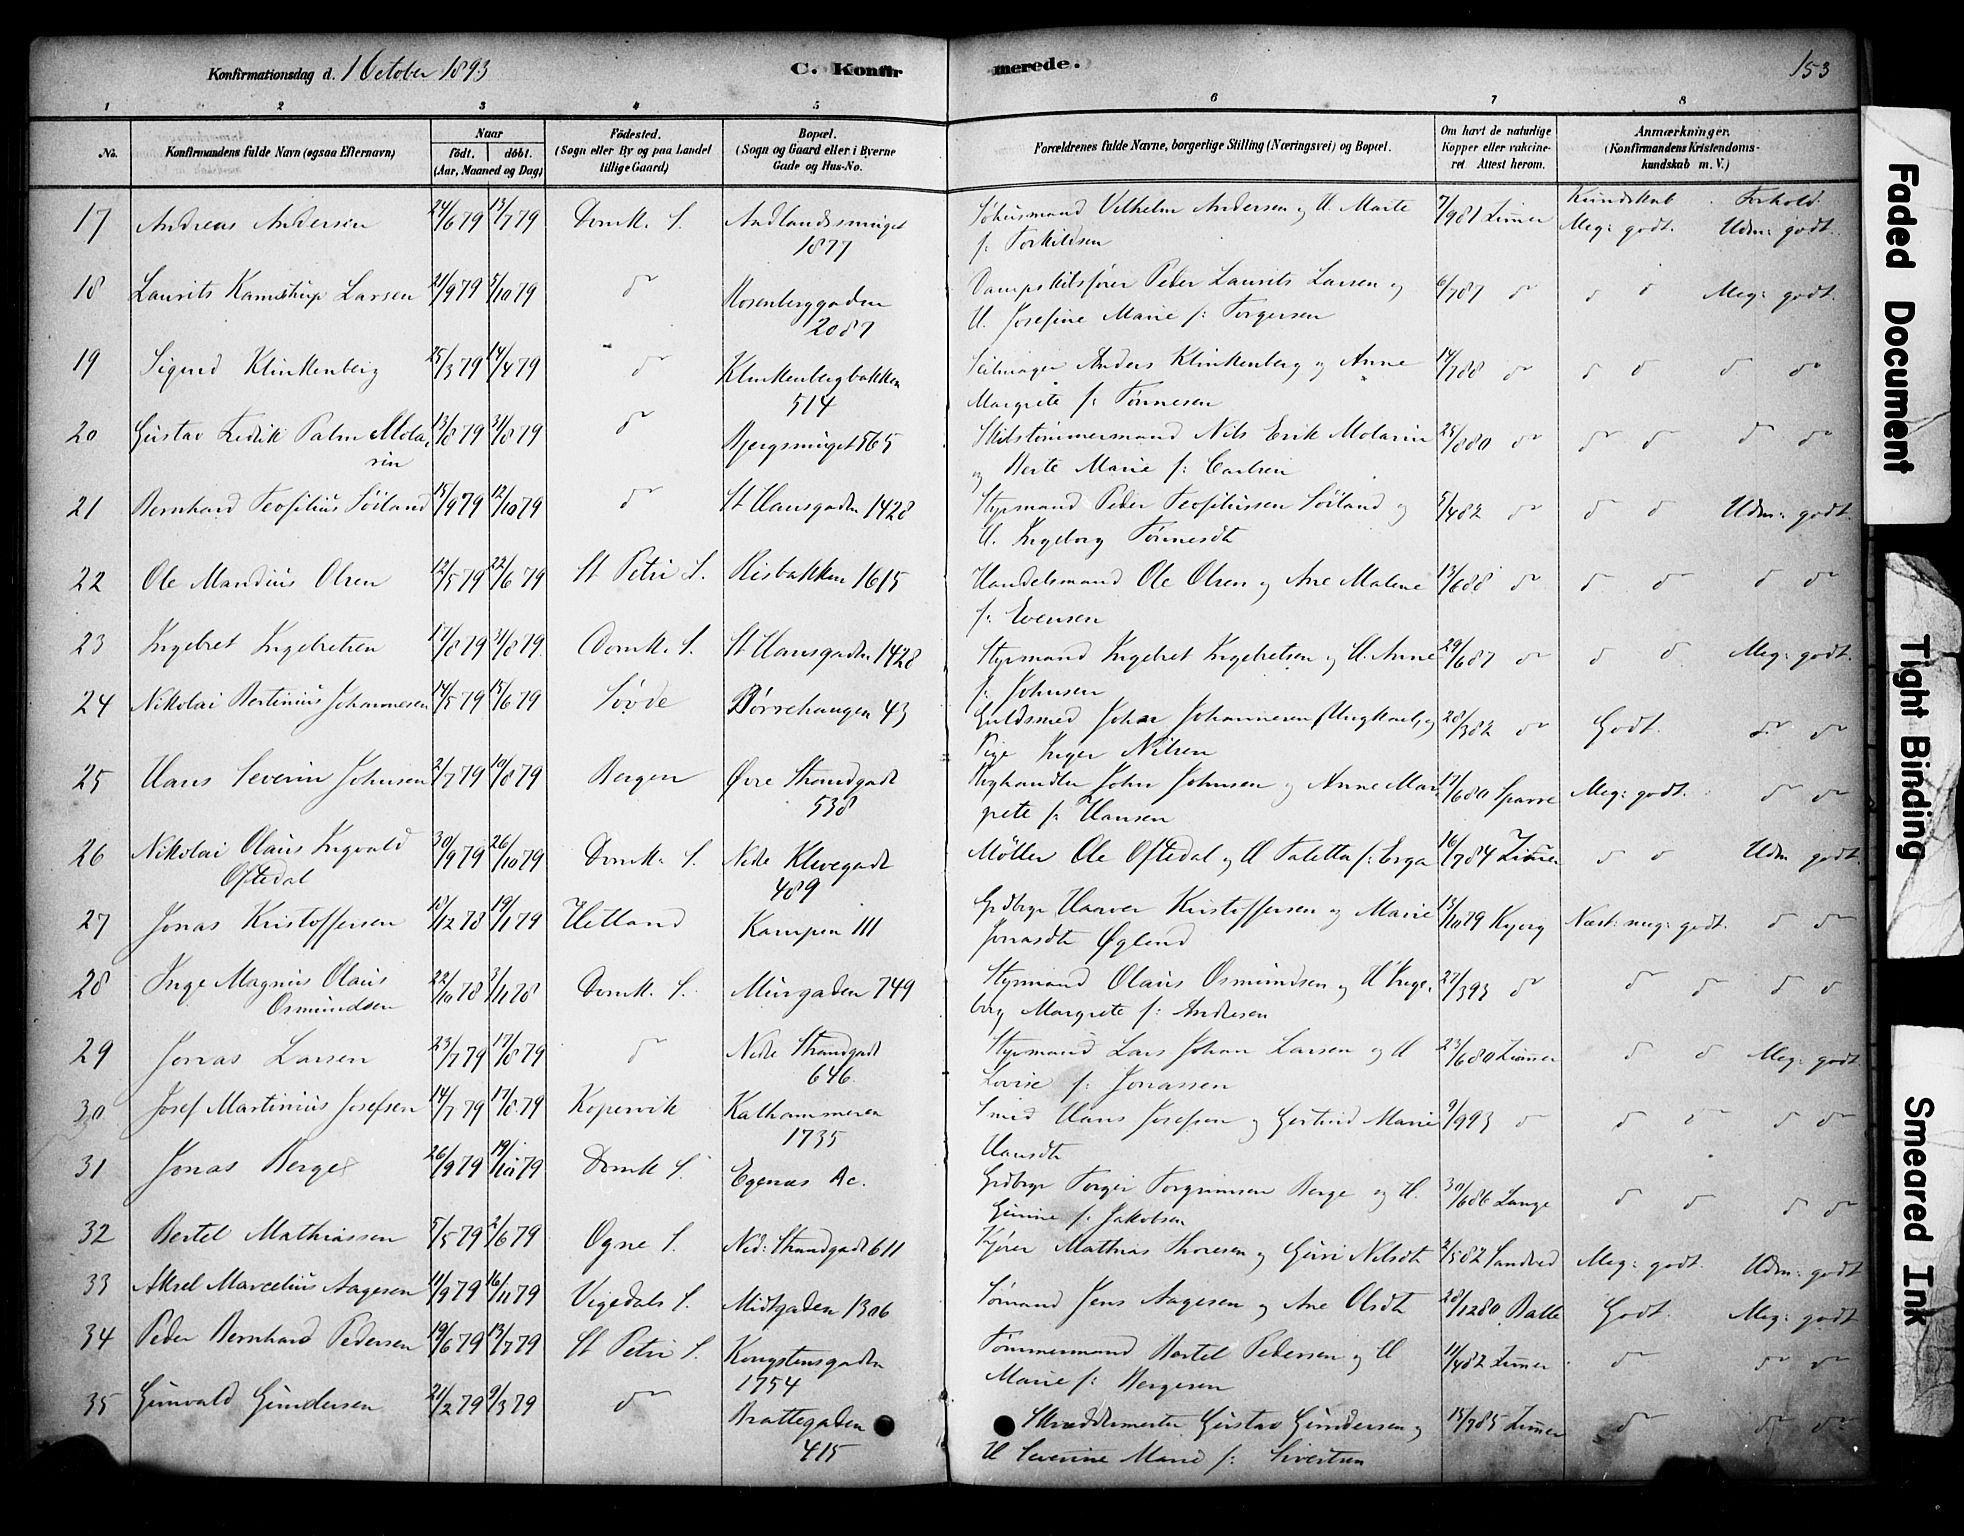 Konfirmationsdag d. 1 October 1893
C. Konfirmerede.
153
1 2 3 4 5 6 7 8
No.
Konfirmandens fulde Navn (ogsaa Efternavn)
Naar født. døbt. (Aar, Maaned og Dag)
Fødested. (Sogn eller By og paa Landet tillige Gaard)
Bopæl. (Sogn og Gaard eller i Byerne Gade og Hus-No.
Forældrenes fulde Navne, borgerlige Stilling (Næringsvei) og Bopæl.
Om havt de naturlige Kopper eller vakcineret. Attest herom.
Anmærkninger. (Konfirmandens Kristendomskundskab m. V.)
Kundskab Forhold
17 Andreas Andersen 24/6 79 13/7 79 Domk. S. 1877 Vilhelm Andersen og H Marte f: Torkildsen 7/9 81 Zimer Meg: godt. Udm: godt.
18 Laurits Kamstrup Larsen 21/9 79 5/10 79 do Rosenberggaden 2087 Dampskibsfører Peder Laurits Larsen og H. Josefine Marie f: Torgersen 6/7 87 do do do Meg: godt.
19 Sigurd Klinkenberg 25/3 79 14/4 79 do Klinkenbergbakken 514 Seilmager Anders Klinkenberg og Anne Margrete f: Tønnesen 14/7 88 do do do do do
20 Gustav Fredrik Palm Molarin 13/8 79 31/8 79 do Bjergsmuget 565 Skibstømmermand Nils Erik Molarin og Berte Marie f: Carlsen 25/8 80 do do do do do
21 Bernhard Teofilius Söiland 15/9 79 12/10 79 do St Hansgaden 1428 Styrmand Peder Teofiliussen Söiland og H. Ingeborg Tønnesdt 5/4 82 do do do Udm: godt.
22 Ole Mandius Olsen 12/5 79 22/6 79 St Petri S. Risbakken 1615 Handelsmand Ole Olsen og Ane Malene f: Evensen 13/6 88 do do do do do
23 Ingebret Ingebretsen 17/8 79 31/8 79 Domk. S. St Hansgaden 1428 Styrmand Ingebret Ingebretsen og H. Anne f: Johnsen 29/6 87 do do do Meg: godt.
24 Nikolai Bertinius Johannesen 14/5 79 15/6 79 Børrehaugen 43 Guldsmed Johan Johannesen (Ungkarl) og Pige Inger Nilsen 28/3 82 do Godt. do do
25 Hans Severin Johnsen 2/7 79 10/8 79 Bergen Øvre Strandgade 538 John Johnsen og Anne Margrete f: Hansen 17/6 80 Sparre Meg: godt. do do
26 Nikolai Olaus Ingvald Oftedal 30/9 79 26/10 79 Domk. S. Nedre Klevegade 489 Møller Ole Oftedal og H Taletta f: Erga 16/7 84 Zimer do do Udm godt.
27 Jonas Kristoffersen 18/12 78 19/1 79 Hetland Kampen 111 Grdbrgr Haaver Kristoffersen og Marie Jonasdtr Øglend 13/10 79 Kyerg Næst: meg: godt. do do
28 Inge Magnus Olaus Osmundsen 22/10 78 3/11 78 Domk. S. Murgaden 749 Styrmand Olaus Osmundsen og H Ingeborg Margrete f: Andresen 27/3 93 do do do do do
29 Jonas Larsen 23/7 79 17/8 79 do Nedre Strandgade 646 Styrmand Lars Johan Larsen og H Lovise f: Jonassen 23/6 80 Zimmer do do Meg: godt
30 Josef Martinius Josefsen 14/7 79 17/8 79 Kopervik Kathammeren 1735 Smed Hans Josefsen og Gertrud Marie Hansdt 9/9 93 do do do do do
31 Jonas Berge 26/9 79 19/10 79 Domk S. Egenæs Ac. Grdbrgr Torger Torgrimsen Berge og H. Gunine f: Jakobsen 30/6 86 Lange do do do do
32 Bertel Mathiassen 5/5 79 2/6 79 Ogne S. Ned: Strandgade 611 Kjører Mathias Thoresen og Guri Nilsdt 2/5 82 Sandved Meg: godt. Udm: godt
33 Aksel Marcelius Aagesen 11/9 79 16/11 79 Vigedals S. Midtgaden 1306 Sømand Jens Aagesen og Ane Olsdt 28/12 80 Balle Godt. Meg: godt
34 Peder Bernhard Pedersen 19/6 79 13/7 79 St Petri S. Kongstensgaden 1754 Tømmermand Bertel Pedersen og H Marie f: Bergesen 11/4 82 Zimer do do do
35 Gunvald Gundersen 21/2 79 9/3 79 do Brattegaden 415 Skræddermester Gustav Gundersen og H Severine Marie f: Sivertsen 15/7 85 Zimer do do do
Faded Document
Tight Binding
Smeared Ink